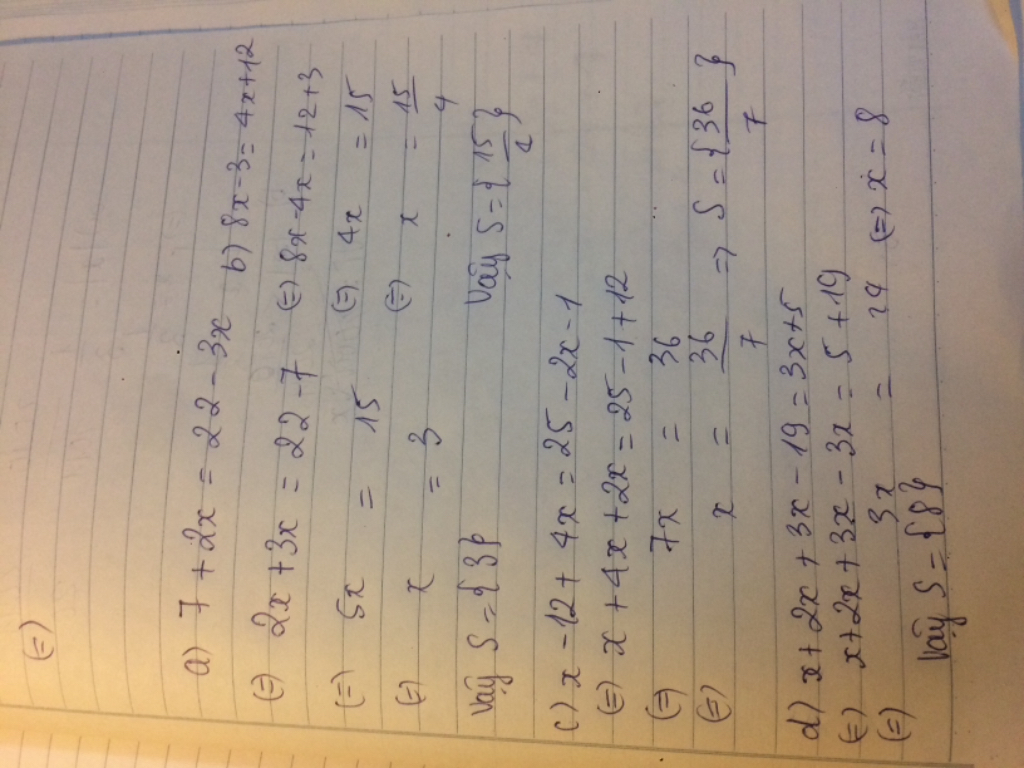 (=)
a) 7 + 2x = 22 - 3x
(=) 2x + 3x = 22 - 7
(=) 5x = 15
(=) x = 3
Vậy S = {3}
b) 8x - 3 = 4x + 12
(=) 8x - 4x = 12 + 3
(=) 4x = 15
(=) x = 15/4
Vậy S = {15/4}
c) x - 12 + 4x = 25 - 2x - 1
(=) x + 4x + 2x = 25 - 1 + 12
(=) 7x = 36
(=) x = 36/7 => S = {36/7}
d) x + 2x + 3x - 19 = 3x + 5
(=) x + 2x + 3x - 3x = 5 + 19
(=) 3x = 24 (=) x = 8
Vậy S = {8}